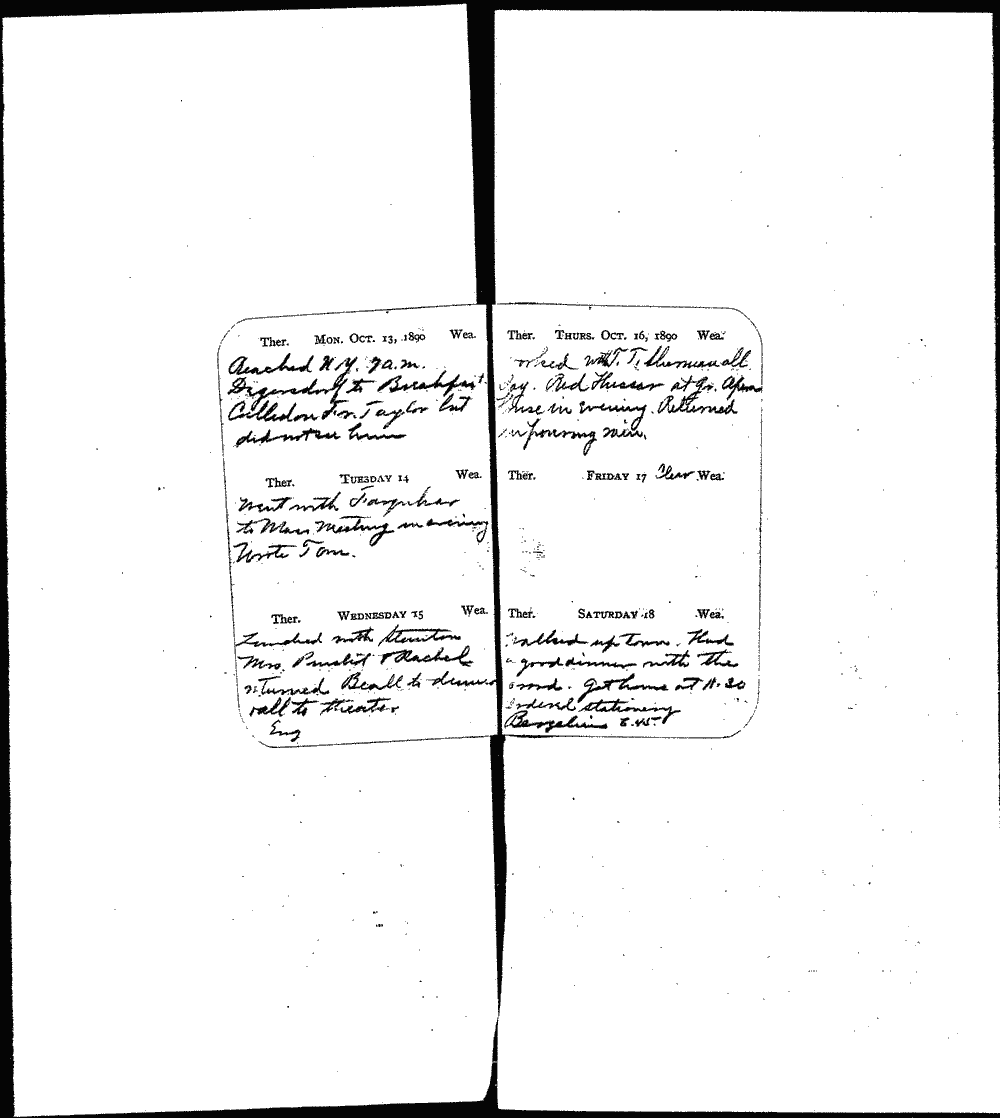 Ther. Mon. Oct. 13, 1890 Wea.
Reached N.Y. 7 a.m.
to Breakfast
Called on Dr. Taylor but
did not see him
Ther. Tuesday 14 Wea.
Went with Farquhar
to Mass Meeting in evening
Wrote Tom.
Ther. Wednesday 15 Wea.
Lunched with Staunton
Mrs. & Rachel
returned Beall to dinner
all to theater
Eng
Ther. Thurs. Oct. 16, 1890 Wea.
orked with T. T. Sherman all
day. Red Hussar at Gr. Opera
House in evening. Returned
in pouring rain.
Ther. Friday 17 Clear Wea.
Ther. Saturday 18 Wea.
alked up town. Had
a good dinner with the
. Got home at 11.30
ordered stationery
8.45